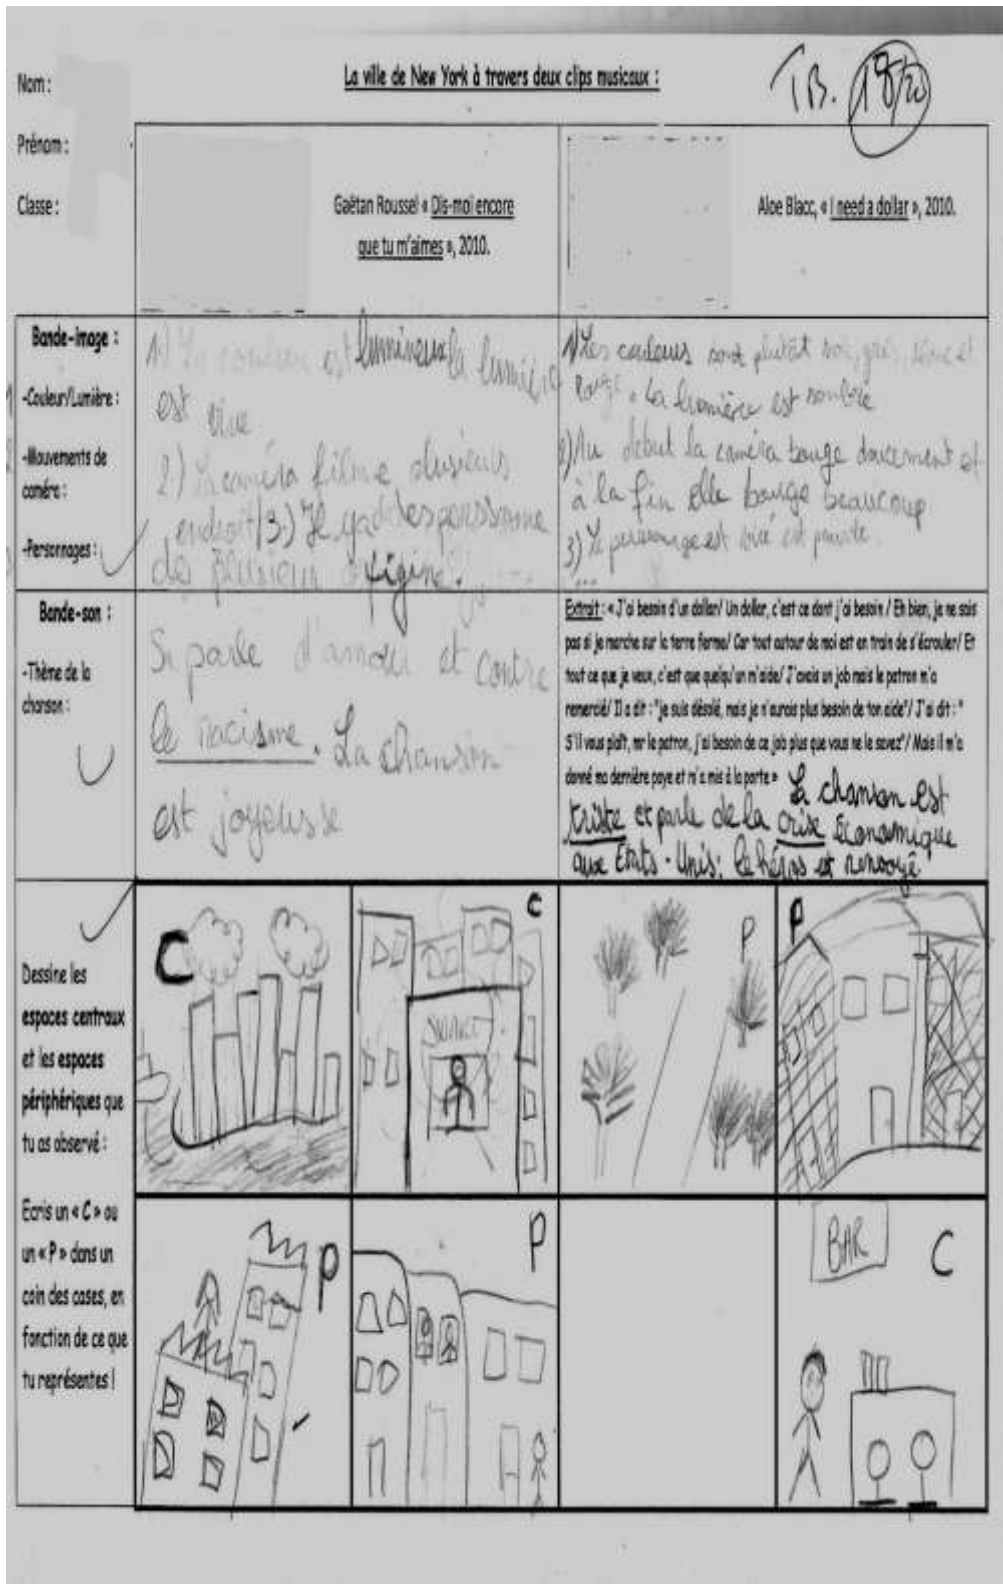 Nom :
La ville de New York à travers deux clips musicaux :
TB. 18/20
Prénom :
Classe :
Gaëtan Roussel « Dis-moi encore
que tu m'aimes », 2010.
Aloe Blacc, « I need a dollar », 2010.
Bande-image :
-Couleur/Lumière :
-Mouvements de
caméra :
-Personnages :
1.) La couleur est lumineux la lumière
est vive
2.) La caméra filme plusieurs
endroit/3.) Il y a des personne
de plusieur origine.
1) Les couleurs sont plutôt noir, gris, et
rouge. La lumière est sombre
2) Au début la caméra bouge doucement et
à la fin elle bouge beaucoup
3) Le personnage est viré est pauvre.
...
Bande-son :
-Thème de la
chanson :
Sa parle d'amour et contre
le racisme. La chanson
est joyeusse
Extrait : « J'ai besoin d'un dollar/ Un dollar, c'est ce dont j'ai besoin / Eh bien, je ne sais
pas si je marche sur la terre ferme/ Car tout autour de moi est en train de s'écrouler/ Et
tout ce que je veux, c'est que quelqu'un m'aide/ J'avais un job mais le patron m'a
remercié/ Il a dit : "je suis désolé, mais je n'aurais plus besoin de ton aide"/ J'ai dit : "
S'il vous plaît, mr le patron, j'ai besoin de ce job plus que vous ne le savez"/ Mais il m'a
donné ma dernière paye et m'a mis à la porte » La chanson est
triste et parle de la crise économique
aux États-Unis; le héros est renvoyé
Dessine les
espaces centraux
et les espaces
périphériques que
tu as observé :
Ecris un « C » ou
un « P » dans un
coin des cases, en
fonction de ce que
tu représentes !
C
C
P
P
P
P
BAR
C